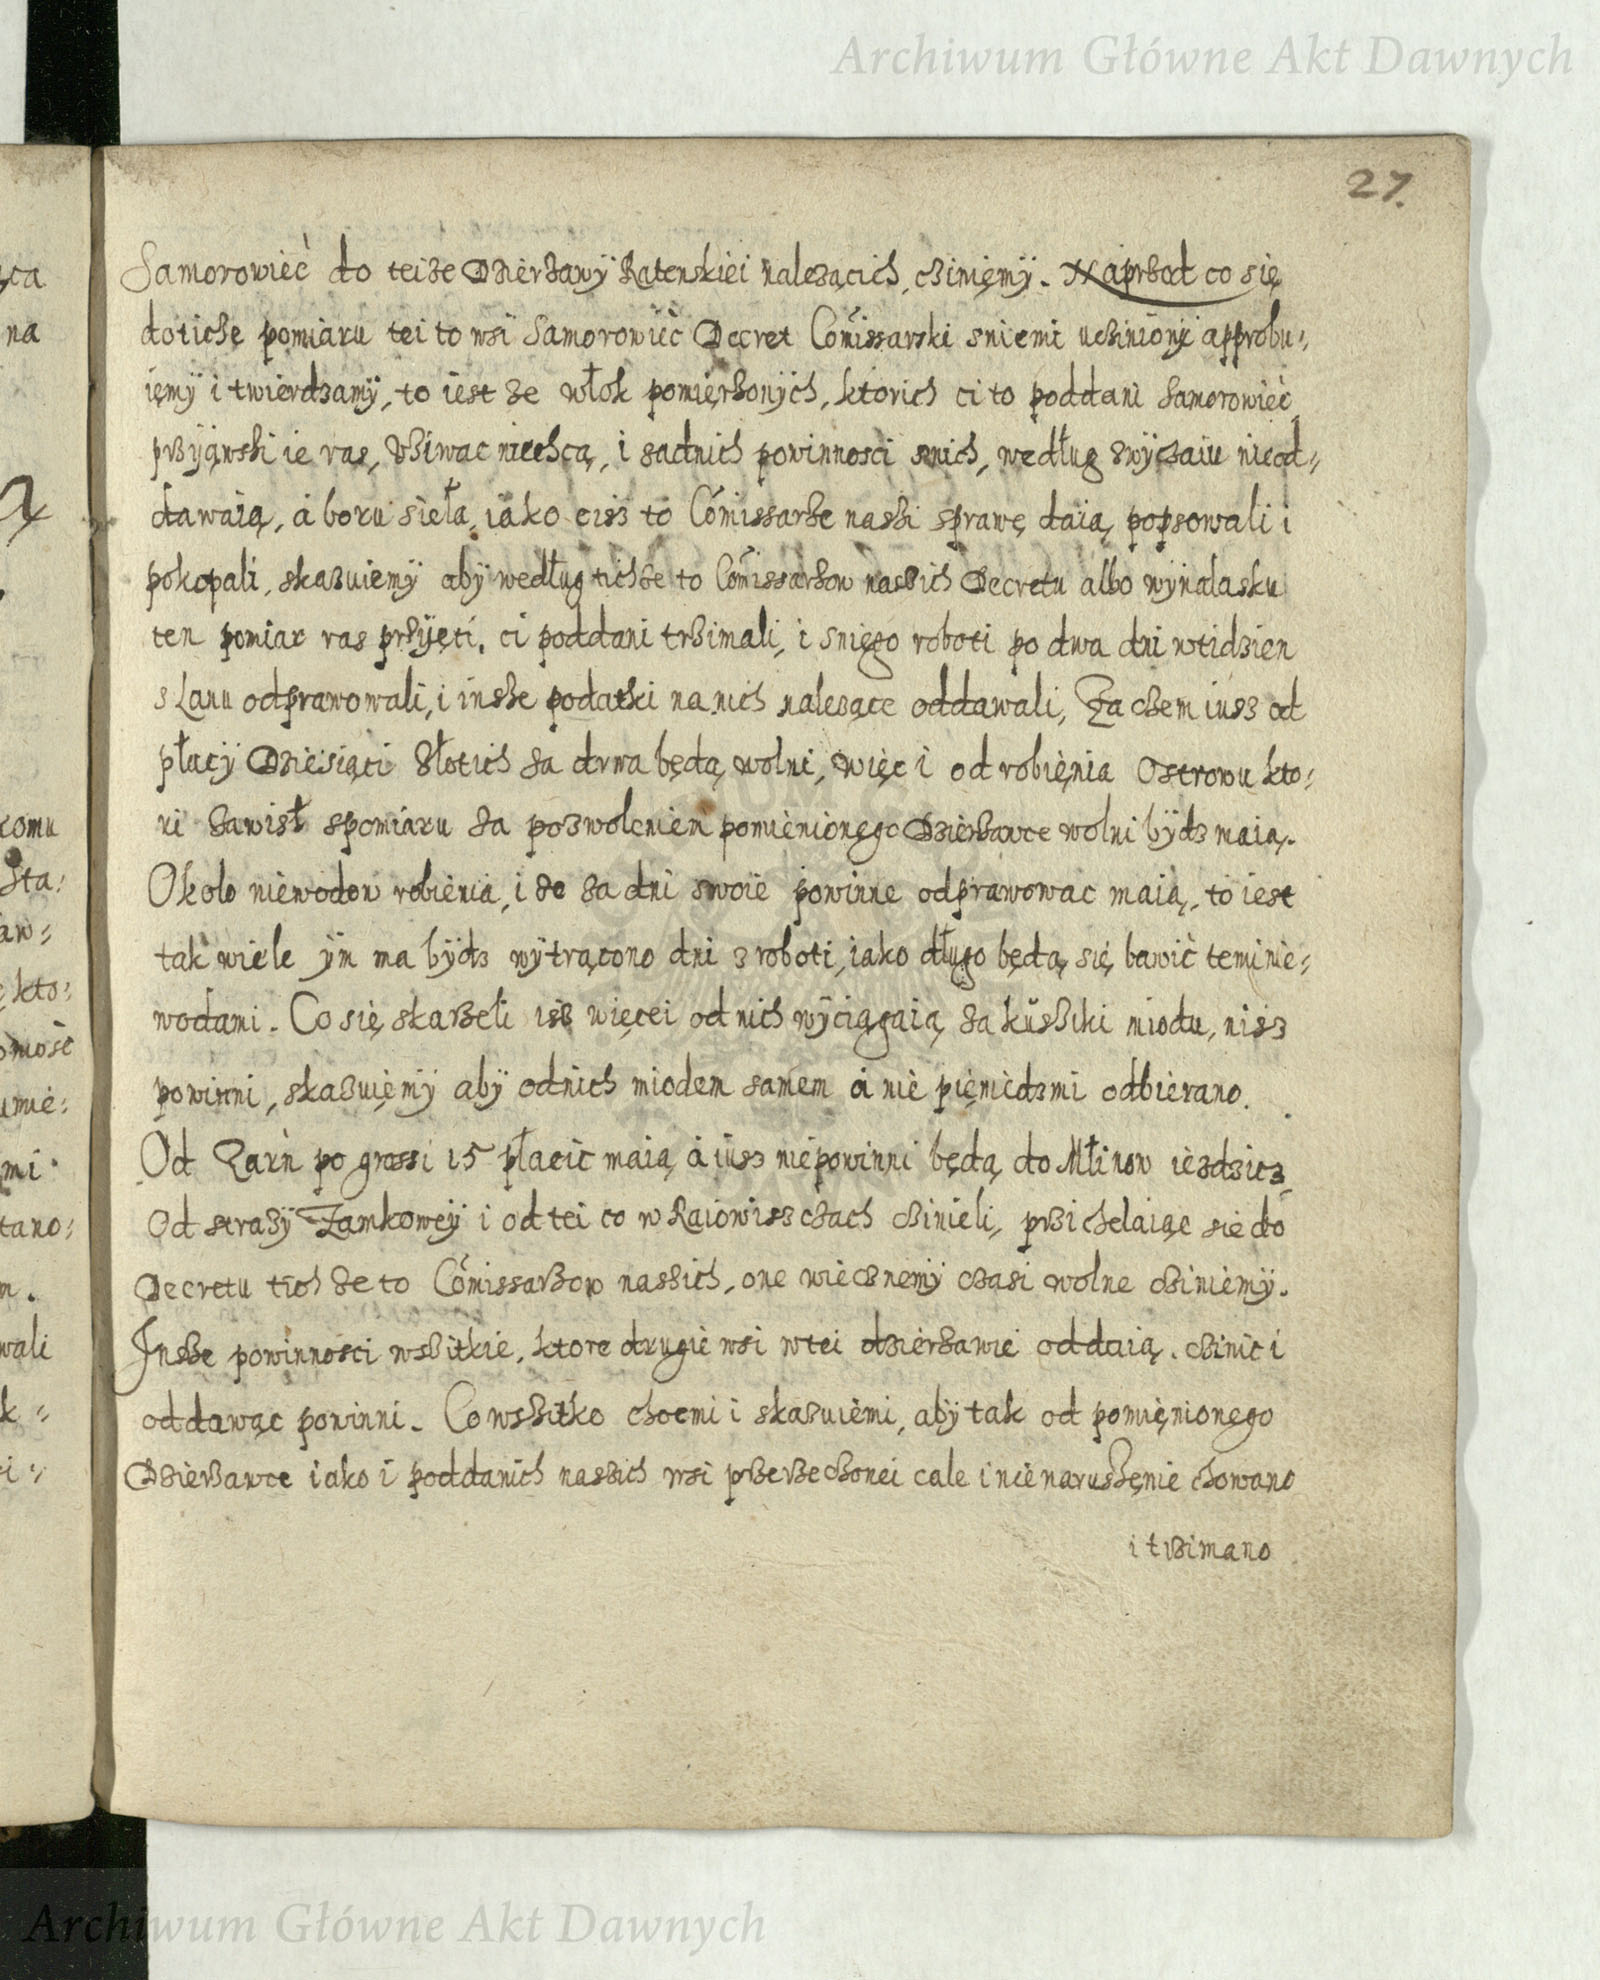 Archiwum Główne Akt Dawnych
27.
Samorowiec do teize Dzierzawÿ Ratenskiei nalezącich, cziniemÿ. Naprzod co się
doticze pomiaru tei to wsi Samorowiec Decret Comissarski sniemi ucziniony approbu=
iemÿ i twierdzamÿ, to iest ze włok pomierzonÿch, ktorich ci to poddani Samorowiec
przÿiąwszi ie raz, uziwac niechcą, i zadnich powinnosci snich, według zwÿczaiu nieod=
dawaią, a boru sieła, iako cisz to Comissarze naszi sprawę daią, popsowali i
pokopali, skazuiemÿ abÿ według tichze to Comissarzow naszich Decretu albo wÿnalasku
ten pomiar raz przÿęti, ci poddani trzimali, i sniego roboti po dwa dni wtidzien
s Lanu odprawowali, i insze podatki na nich nalezące oddawali, Zaczem iusz od
płacÿ Dziesiąci złotich za drwa będą wolni, więc i od robienia Ostrowu kto=
ri zawisł spomiaru za pozwoleniem pomienionego Dzierzawce wolni bÿdz maią.
Okolo niewodow robienia, i ze za dni swoie powinne odprawowac maią, to iest
tak wiele ÿm ma bÿdz wÿtrącono dni z roboti, iako długo będą się bawic temi nie=
wodami. Co się skarzeli isz więcei od nich wÿciągaią za kuszki miodu, nisz
powinni, skazuiemÿ abÿ odnich miodem samem a nie pieniedzmi odbierano.
Od Zarn po grossi 15 płacic maią, a iusz niepowinni będą do Młinow iezdzicz
Od strazÿ Zamkoweÿ i od tei co w Raiowiszczach czinieli, przichelaiąc sie do
Decretu tich ze to Comissarzow naszich, one wiecznemÿ czasi wolne cziniemÿ.
Insze powinnosci wszitkie, ktore drugie wsi wtei dzierzawie oddaią, czinic i
oddawac powinni. Co wszitko chcemi i skazuiemi, abÿ tak od pomienionego
Dzierzawce iako i poddanich naszich wsi przerzeczonei cale i nienaruszenie chowano
i trzimano
Archiwum Główne Akt Dawnych